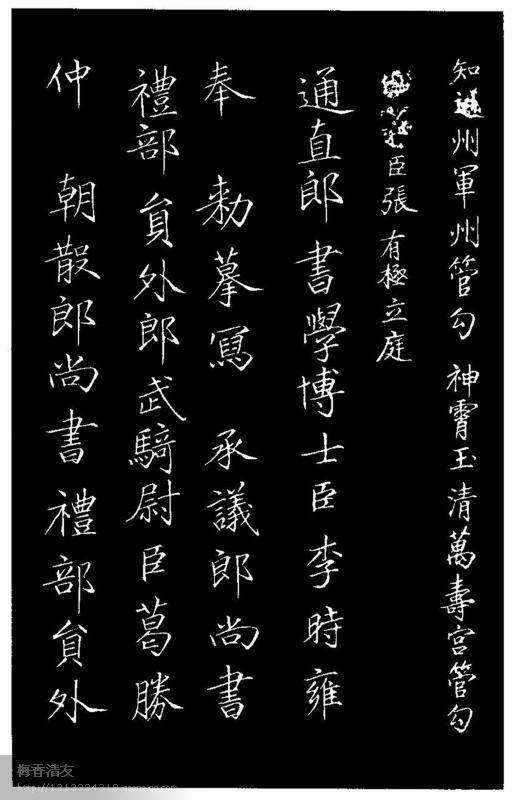 知通州軍州管勾 神霄玉清萬壽宮管勾
臣張 有極立庭
通直郎書學博士臣李時雍
奉 勑摹寫 承議郎尚書
禮部貟外郎武騎尉臣葛勝
仲 朝散郎尚書禮部貟外
梅香清友